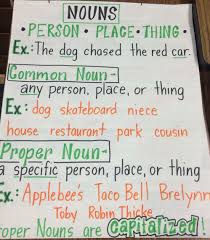 NOUNS
• PERSON • PLACE • THING •
Ex.: The dog chased the red car.
Common Noun-
any person, place, or thing
Ex: dog skateboard niece
house restaurant park cousin
Proper Noun-
a specific person, place, or thing
Ex.: Applebee's Taco Bell Brelynn
Toby Robin Thicke
roper Nouns are Capitalized!